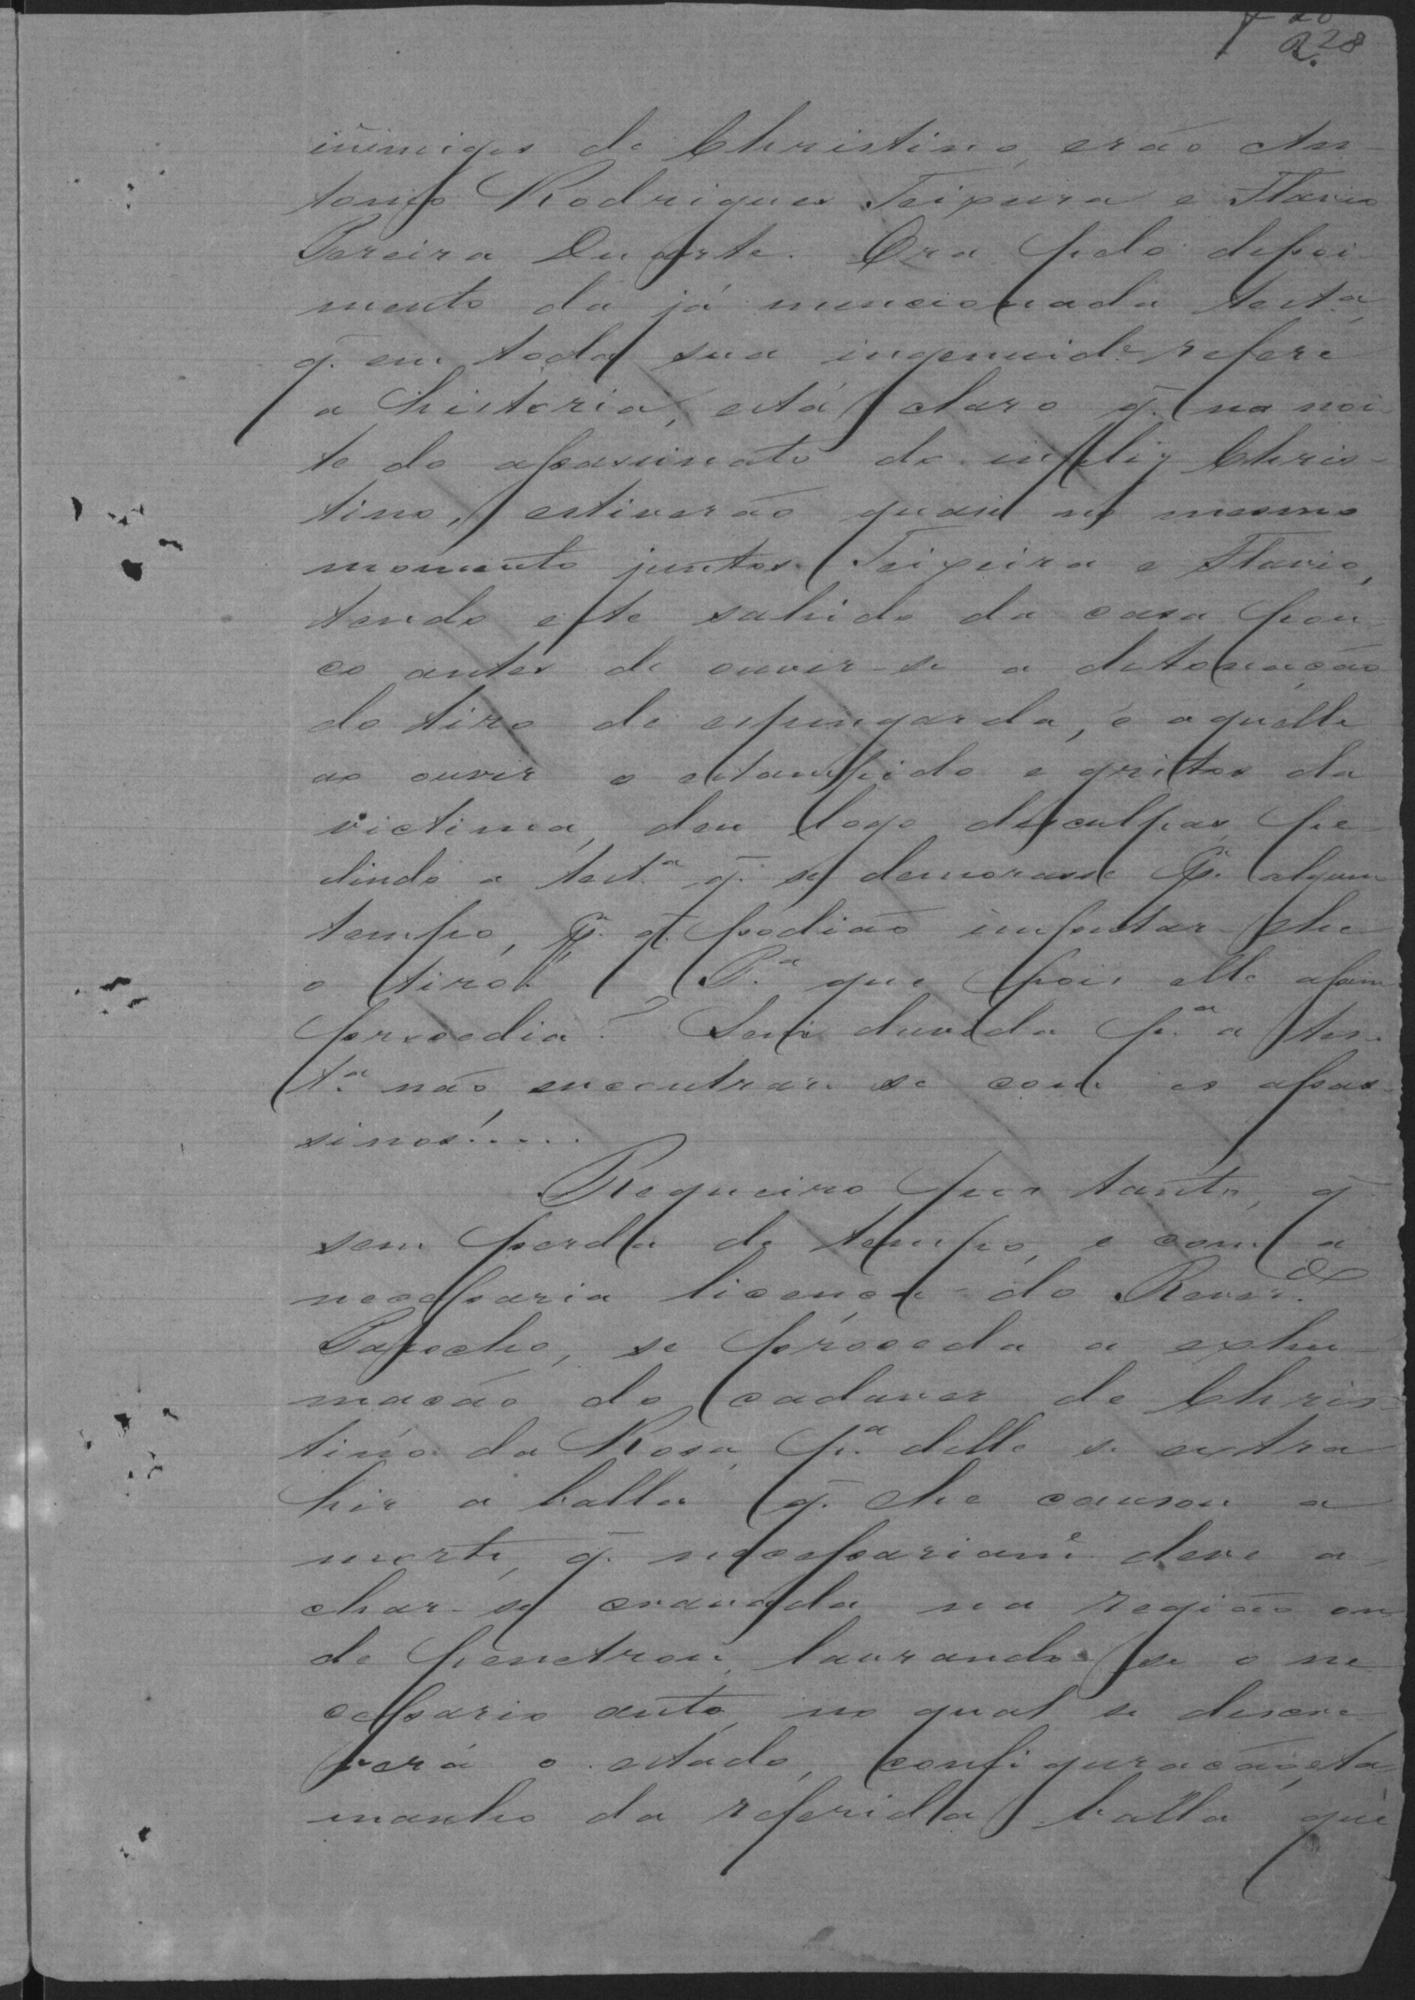 28
inimigos de Christino, erão An-
tonio Rodrigues Teixeira e Flavio
Pereira Duarte. Ora pelo depoi-
mento da já mencionada testª,
q. em toda sua ingenuide refere
a historia, está claro q. na noi-
te do assassinato do infeliz Chris-
tino, estiverão quasi no mesmo
momento juntos Teixeira e Flavio,
tendo este sahido da casa pou-
co antes de ouvir-se a detonação
do tiro de espingarda, e aquelle
ao ouvir o estampido e gritos da
victima, deu logo desculpas, pe-
dindo a testª q. se demorasse pr. algum
tempo, pr. q. podião imputar-lhe
o tiro! Pª que pois elle assim
procedia? Sem duvida pª a tes-
tª não encontrar-se com os assas-
sinos!.....
Requeiro por tanto, q
sem perda de tempo, e com a
necessaria licença do Revdo
Parocho, se proceda a exhu-
mação do cadaver de Chris-
tino da Rosa, pª delle se extra-
hir a balla q. lhe causou a
morte, q. necessariame deve a-
char-se cravada na região on-
de penetrou, lavrando-se o ne-
cessario auto, no qual se descre-
verá o estado, configuração, e ta-
manho da referida balla que